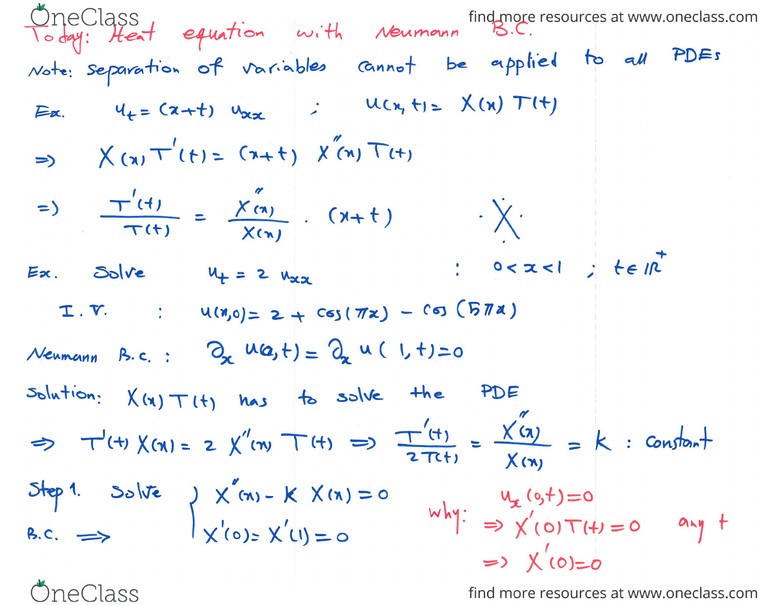 OneClass find more resources at www.oneclass.com
Today: Heat equation with Neumann B.C.
Note: separation of variables cannot be applied to all PDEs
Ex. u_t = (x+t) u_xx ; u(x,t) = X(x) T(t)
⇒ X(x) T'(t) = (x+t) X''(x) T(t)
⇒ T'(t)/T(t) = X''(x)/X(x) · (x+t) ·X·
Ex. Solve u_t = 2 u_xx : 0<x<1 ; t∈ℝ⁺
I.V. : u(x,0) = 2 + cos(πx) - cos(5πx)
Neumann B.c. : ∂_x u(0,t) = ∂_x u(1,t) = 0
Solution: X(x) T(t) has to solve the PDE
⇒ T'(t) X(x) = 2 X''(x) T(t) ⇒ T'(t)/2T(t) = X''(x)/X(x) = K : constant
Step 1. Solve { X''(x) - K X(x) = 0
B.C. ⇒ X'(0) = X'(1) = 0
why: u_x(0,t) = 0
⇒ X'(0) T(t) = 0 any t
⇒ X'(0) = 0
OneClass find more resources at www.oneclass.com